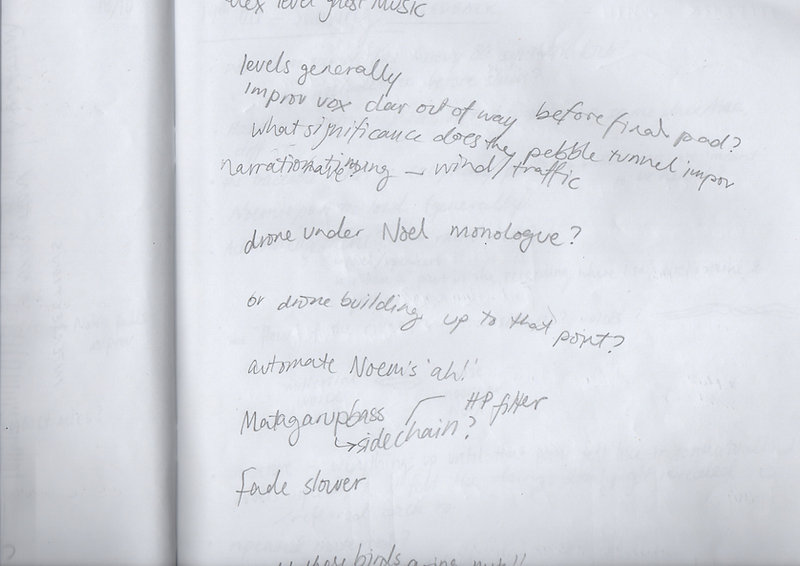 level ghost music
levels generally
improv vox clear out of way before final pad?
what significance does the pebble tunnel improv
narration timing – wind/traffic
drone under Noel monologue?
or drone building up to that point?
automate Noemi's 'ah!'
bass HP filter
↳ sidechain?
fade slower
those birds